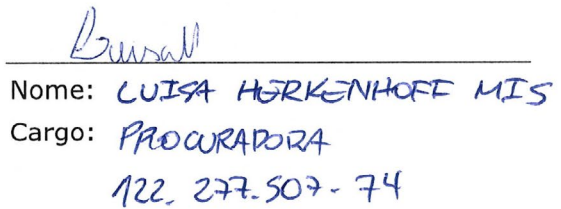 Nome: LUISA HERKENHOFF MIS
Cargo: PROCURADORA
122.277.507-74